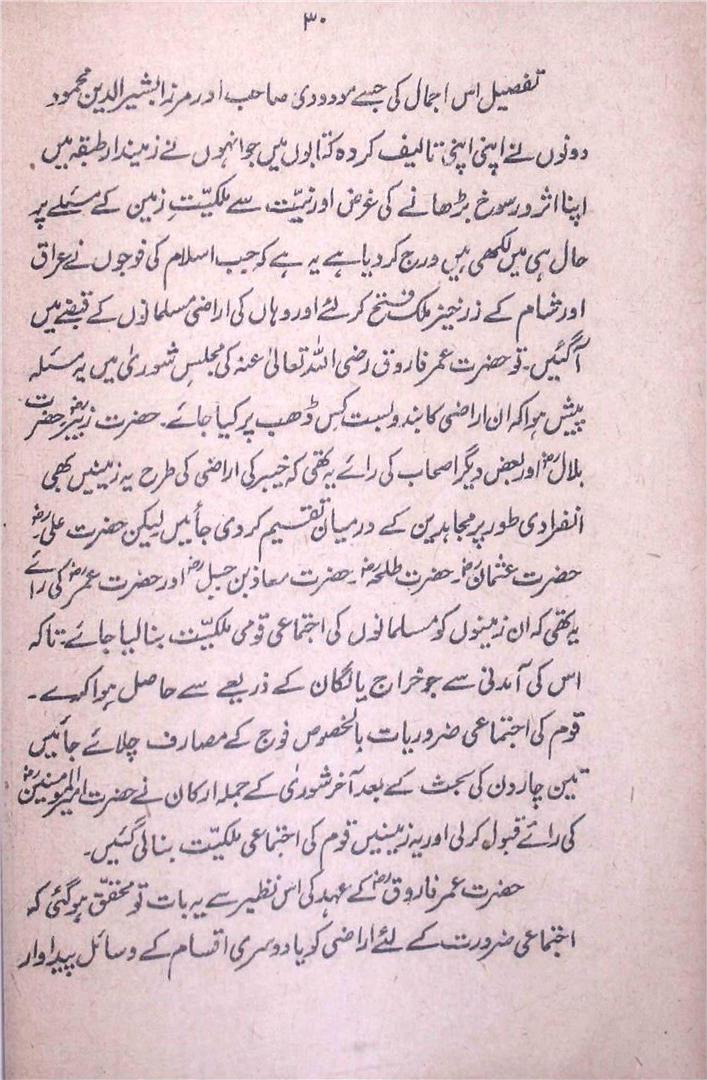 ۳۰
تفصیل اس اجمال کی جسے مودودی صاحب اور مرزا بشیر الدین محمود
دونوں نے اپنی اپنی تالیف کردہ کتابوں میں جو انہوں نے زمیندار طبقہ میں
اپنا اثر و رسوخ بڑھانے کی غرض اور نیّت سے ملکیّتِ زمین کے مسئلے پر
حال ہی میں لکھی ہیں درج کر دیا ہے یہ ہے کہ جب اسلام کی فوجوں نے عراق
اور شام کے زرخیز ملک فتح کر لئے اور وہاں کی اراضی مسلمانوں کے قبضے میں
آگئیں۔ تو حضرت عمر فاروق رضی اللہ تعالیٰ عنہ کی مجلس شوریٰ میں یہ مسئلہ
پیش ہوا کہ ان اراضی کا بندوبست کس ڈھب پر کیا جائے۔ حضرت زبیرؓ۔ حضرت
بلالؓ اور بعض دیگر اصحاب کی رائے یہ تھی کہ خیبر کی اراضی کی طرح یہ زمینیں بھی
انفرادی طور پر مجاہدین کے درمیان تقسیم کر دی جائیں لیکن حضرت علیؓ۔
حضرت عثمانؓ۔ حضرت طلحہؓ۔ حضرت معاذ بن جبلؓ اور حضرت عمرؓ کی رائے
یہ تھی کہ ان زمینوں کو مسلمانوں کی اجتماعی قومی ملکیّت بنا لیا جائے۔ تاکہ
اس کی آمدنی سے جو خراج یا لگان کے ذریعے سے حاصل ہوا کرے۔
قوم کی اجتماعی ضروریات بالخصوص فوج کے مصارف چلائے جائیں
تین چار دن کی بحث کے بعد آخر شوریٰ کے جملہ ارکان نے حضرت امیرالمومنینؓ
کی رائے قبول کر لی اور یہ زمینیں قوم کی اجتماعی ملکیّت بنا لی گئیں۔
حضرت عمر فاروقؓ کے عہد کی اس نظیر سے یہ بات تو محقّق ہو گئی کہ
اجتماعی ضرورت کے لئے اراضی کو یا دوسری اقسام کے وسائل پیداوار